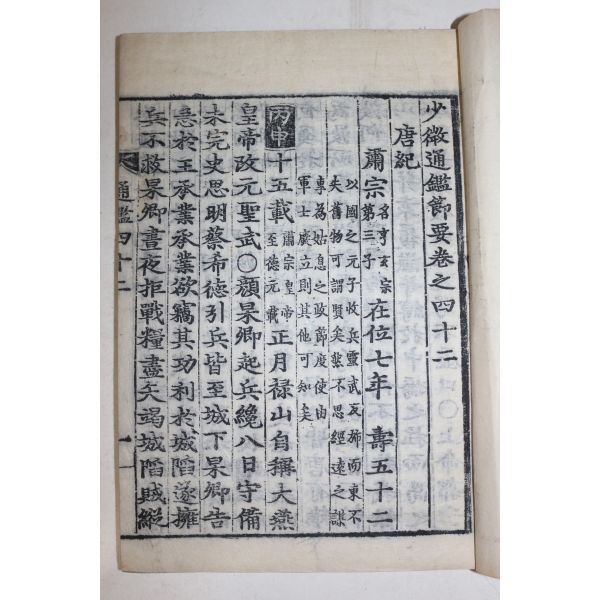 少微通鑑節要卷之四十二
唐紀
肅宗 名亨玄宗第三子 在位七年 壽五十二
以國之元子收兵靈武反旆而東不
失舊物可謂賢矣然不思經遠之謀
專為姑息之政節度使由
軍士廢立則其他可知矣
丙申 十五載 肅宗皇帝至德元載 正月祿山自稱大燕
皇帝改元聖武○顔杲卿起兵纔八日守備
未完史思明蔡希德引兵皆至城下杲卿告
急於王承業承業欲竊其功利於城陷遂擁
兵不救杲卿晝夜拒戰糧盡矢竭城陷賊縱
通鑑四十二
一